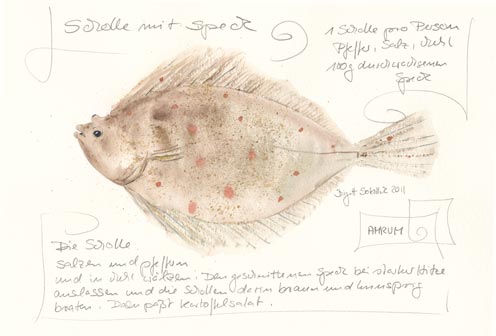 Scholle mit Speck
1 Scholle pro Person
Pfeffer, Salz, Mehl
100g durchwachsenen
Speck
Birgit 2011
AMRUM
Die Scholle
salzen und pfeffern
und in Mehl wälzen. Den geschnittenen Speck bei starker Hitze
auslassen und die Schollen darin braun und knusprig
braten. Dazu paßt Kartoffelsalat.